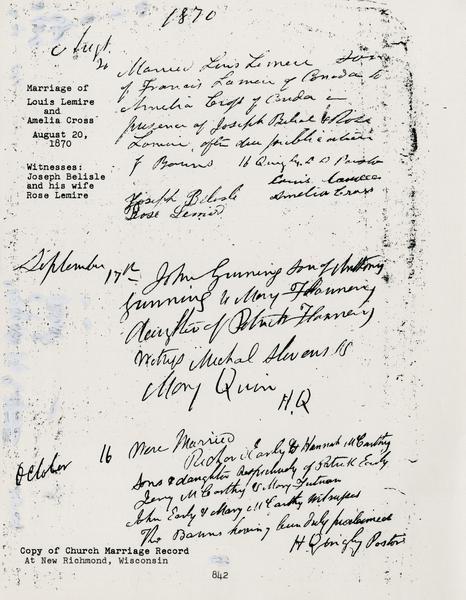 1870
August
20
Married Louis Lemere son
of Francis Lamere of Canada to
Amelia Cross of Canda in
presence of Joseph Belile & Rose
Lamere after due publication
of Banns H Quigley P Pastor
Louis
Amelia Cross
Joseph Belisle
Rose Lemire
Marriage of
Louis Lemire
and
Amelia Cross
August 20,
1870
Witnesses:
Joseph Belisle
and his wife
Rose Lemire
September 17th John Gunning son of Anthony
Gunning to Mary Flannery
daughter of Patrick Flannery
Witness Michal Stevens &
Mary Quin
H.Q
October 16 Were Married
Early & Hannah McCarthy
Sons & daughter respectively of Patrick Early
Jerry McCarthy & Mary
John Early & Mary McCarthy Witnesses
The Banns having been duly proclaimed
H Quigley Pastor
Copy of Church Marriage Record
At New Richmond, Wisconsin
842